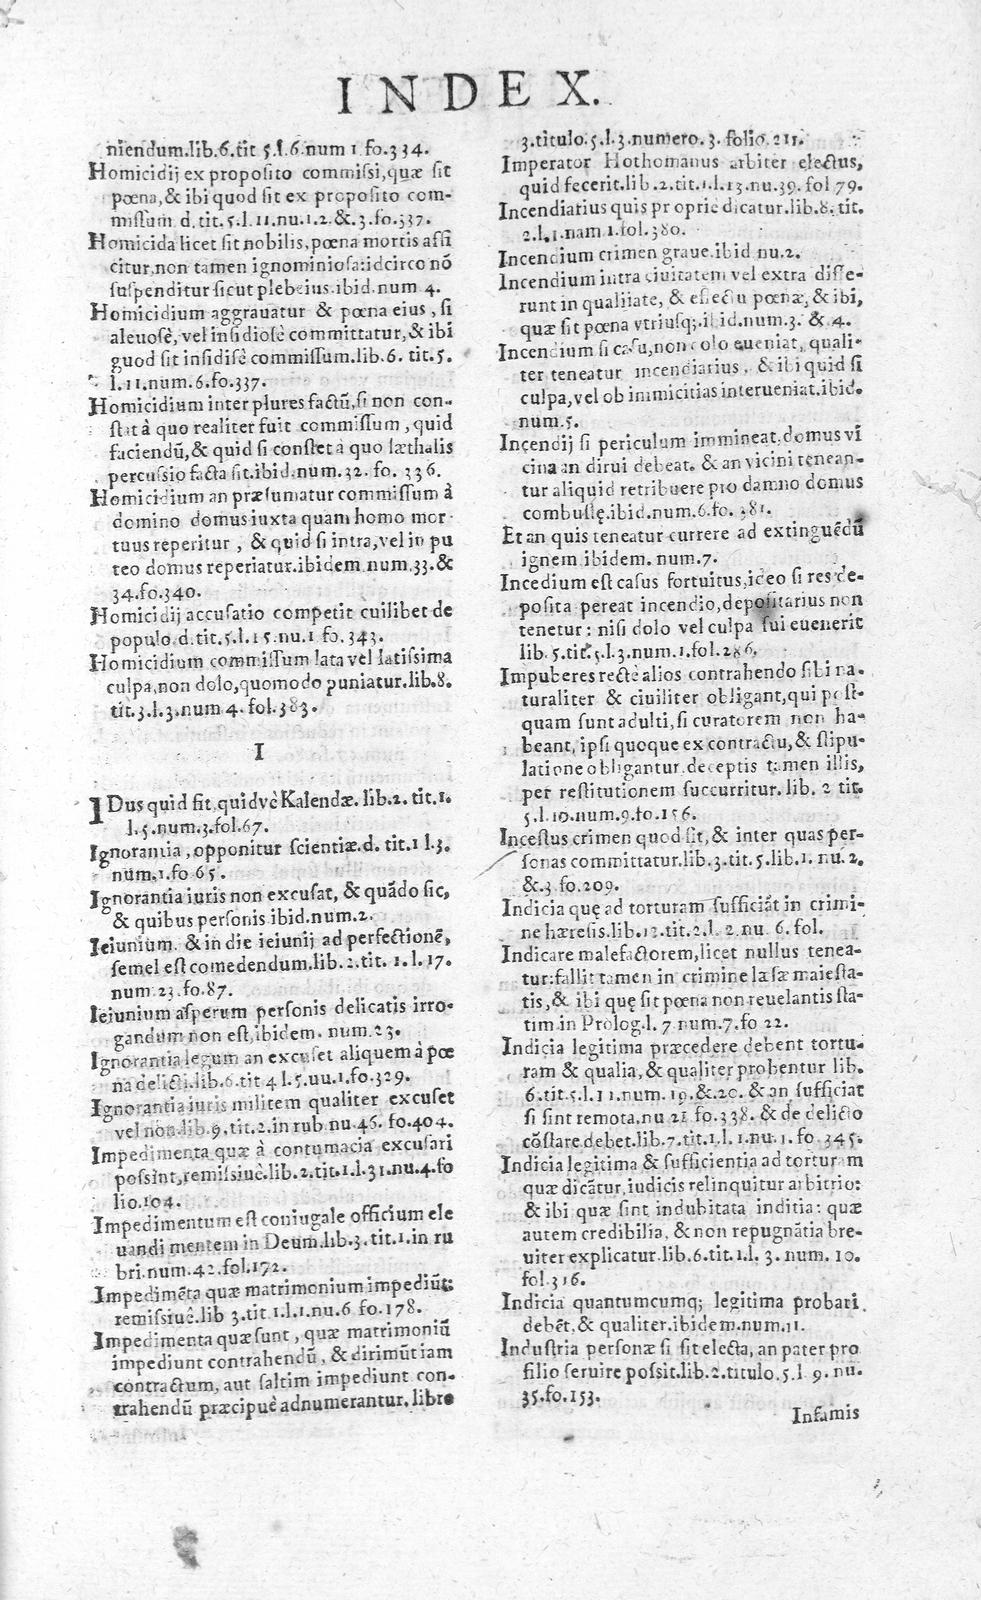 INDEX.
niendum.lib.6.tit 5.l.6.num 1.fo.334.
Homicidij ex proposito commissi,quæ sit
pœna,& ibi quod sit ex proposito com-
missum d.tit.5.l.11.nu.1.2.&.3.fo.337.
Homicida licet sit nobilis,pœna mortis affi
citur,non tamen ignominiosa:idcirco nõ
suspenditur sicut plebeius.ibid.num 4.
Homicidium aggrauatur & pœna eius, si
aleuosè, vel insidiosè committatur,& ibi
guod sit insidisè commissum.lib.6. tit.5.
l.11.num.6.fo.337.
Homicidium inter plures factũ,si non con-
stat à quo realiter fuit commissum, quid
faciendũ,& quid si constet à quo læthalis
percussio facta sit.ibid.num.32. fo. 336.
Homicidium an præsumatur commissum à
domino domus iuxta quam homo mor
tuus reperitur, & quid si intra,vel in pu
teo domus reperiatur.ibidem num.33.&
34.fo.340.
Homicidij accusatio competit cuilibet de
populo.d.tit.5.l.15.nu.1 fo.343.
Homicidium commissum lata vel latissima
culpa,non dolo,quomodo puniatur.lib.8.
tit.3.l.3.num 4. fol.383.
I
IDus quid sit,quidvè Kalendæ. lib.2. tit.1.
l.5.num.3.fol.67.
Ignorantia, opponitur scientiæ.d. tit.1 l.3.
num.1.fo 65.
Ignorantia iuris non excusat, & quãdo sic,
& quibus personis ibid.num.2.
Ieiunium. & in die ieiunij ad perfectionẽ,
semel est comedendum.lib.2.tit. 1.l.17.
num.23.fo.87.
Ieiunium asperum personis delicatis irro-
gandum non est,ibidem. num.23.
Ignorantia legum an excuset aliquem à pœ
na delicti.lib.6.tit 4 l.5.uu.1.fo.329.
Ignorantia iuris militem qualiter excuset
vel non.lib 9.tit.2.in rub nu.46. fo.404.
Impedimenta quæ à contumacia excusari
possint,remissiuè.lib.2.tit.1.l.31.nu.4.fo
lio.104.
Impedimentum est coniugale officium ele
uandi mentem in Deum.lib.3.tit.1.in ru
bri.num.42.fol.172.
Impedimẽta quæ matrimonium impediũt:
remissiuè.lib 3.tit 1.l.1.nu.6 fo.178.
Impedimenta quæsunt, quæ matrimoniũ
impediunt contrahendũ, & dirimũt iam
contractum, aut saltim impediunt con-
trahendũ præcipuè adnumerantur. libro
3.titulo.5.l.3.numero.3. folio.211.
Imperator Hothomanus arbiter electus,
quid fecerit.lib.2.tit.1.l.13.nu.39.fol 79.
Incendiatius quis proprie dicatur.lib.8.tit.
2.l.1.nam 1.fol.380.
Incendium crimen graue.ibid nu.2.
Incendium intra ciuitatem vel extra diffe-
runt in qualiiate, & effectu pœnæ, & ibi,
quæ sit pœna vtriusq;.ibid.num.3. & 4.
Incendium si casu,non dolo eueniat, quali-
ter teneatur incendiarius, & ibi quid si
culpa,vel ob inimicitias interueniat.ibid.
num.5.
Incendij si periculum immineat,domus vi
cina an dirui debeat. & an vicini tenean-
tur aliquid retribuere pro damno domus
combustę.ibid.num.6.fo.381.
Et an quis teneatur currere ad extinguẽdũ
ignem ibidem. num.7.
Incedium est casus fortuitus,ideo si res de-
posita pereat incendio,depositarius non
tenetur: nisi dolo vel culpa sui euenerit
lib. 5.tit.5.l.3.num.1.fol.286.
Impuberes rectè alios contrahendo sibi na-
turaliter & ciuiliter obligant,qui post-
quam sunt adulti,si curatorem non ha-
beant, ipsi quoque ex contractu,& stipu-
latione obligantur.deceptis tamen illis,
per restitutionem succurritur. lib. 2 tit.
5.l.10.num.9.fo.156.
Incestus crimen quod sit, & inter quas per-
sonas committatur.lib.3.tit.5.lib.1. nu.2.
&.3 fo.209.
Indicia quę ad torturam sufficiãt in crimi-
ne hæresis.lib.12.tit.2.l. 2.nu. 6.fol.
Indicare malefactorem,licet nullus tenea-
tur:fallit tamen in crimine læsæ maiesta-
tis,& ibi quę sit pœna non reuelantis sta-
tim.in Prolog.l. 7 num.7.fo 22.
Indicia legitima præcedere debent tortu-
ram & qualia,& qualiter probentur lib.
6.tit.5.l.11.num. 19.&.20. & an sufficiat
si sint remota,nu 21 fo.338. & de delicto
cõstare debet.lib.7.tit.1.l.1.nu.1. fo.345.
Indicia legitima & sufficientia ad torturam
quæ dicãtur,iudicis relinquitur arbitrio:
& ibi quæ sint indubitata inditia: quæ
autem credibilia, & non repugnãtia bre-
uiter explicatur.lib.6.tit.1.l. 3. num. 10.
fol.316.
Indicia quantumcumq; legitima probari
debẽt,& qualiter.ibidem.num.11.
Industria personæ si sit electa, an pater pro
filio seruire possit.lib.2.titulo.5.l 9. nu.
35.fo.153.
Infamis